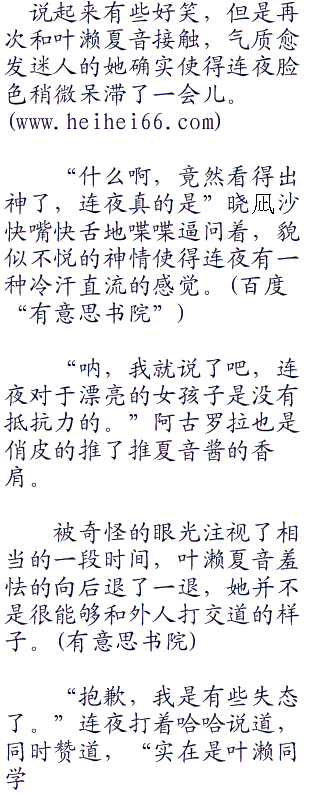 说起来有些好笑，但是再
次和叶濑夏音接触，气质愈
发迷人的她确实使得连夜脸
色稍微呆滞了一会儿。
(www.heihei66.com)
“什么啊，竟然看得出
神了，连夜真的是”晓凪沙
快嘴快舌地喋喋逼问着，貌
似不悦的神情使得连夜有一
种冷汗直流的感觉。(百度
“有意思书院”)
“呐，我就说了吧，连
夜对于漂亮的女孩子是没有
抵抗力的。”阿古罗拉也是
俏皮的推了推夏音酱的香
肩。
被奇怪的眼光注视了相
当的一段时间，叶濑夏音羞
怯的向后退了一退，她并不
是很能够和外人打交道的样
子。(有意思书院)
“抱歉，我是有些失态
了。”连夜打着哈哈说道，
同时赞道，“实在是叶濑同
学